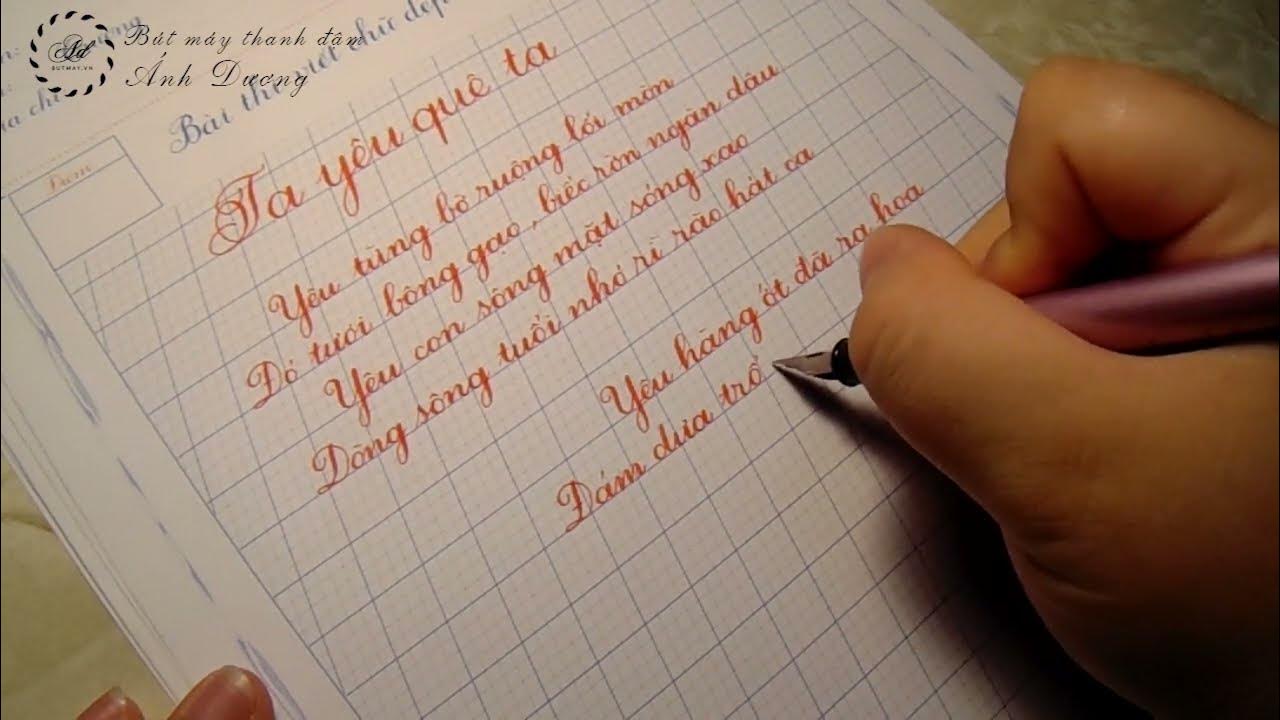 Bút máy thanh đậm
Ánh Dương
Ad
BUTMAY.VN
Bài thi viết chữ đẹp
Điểm
Ta yêu quê ta
Yêu từng bờ ruộng lối mòn
Đỏ tươi bông gạo, biếc rờn ngàn dâu
Yêu con sông mặt sóng xao
Dòng sông tuổi nhỏ rì rào hát ca
Yêu hàng ớt đã ra hoa
Đám dưa trổ